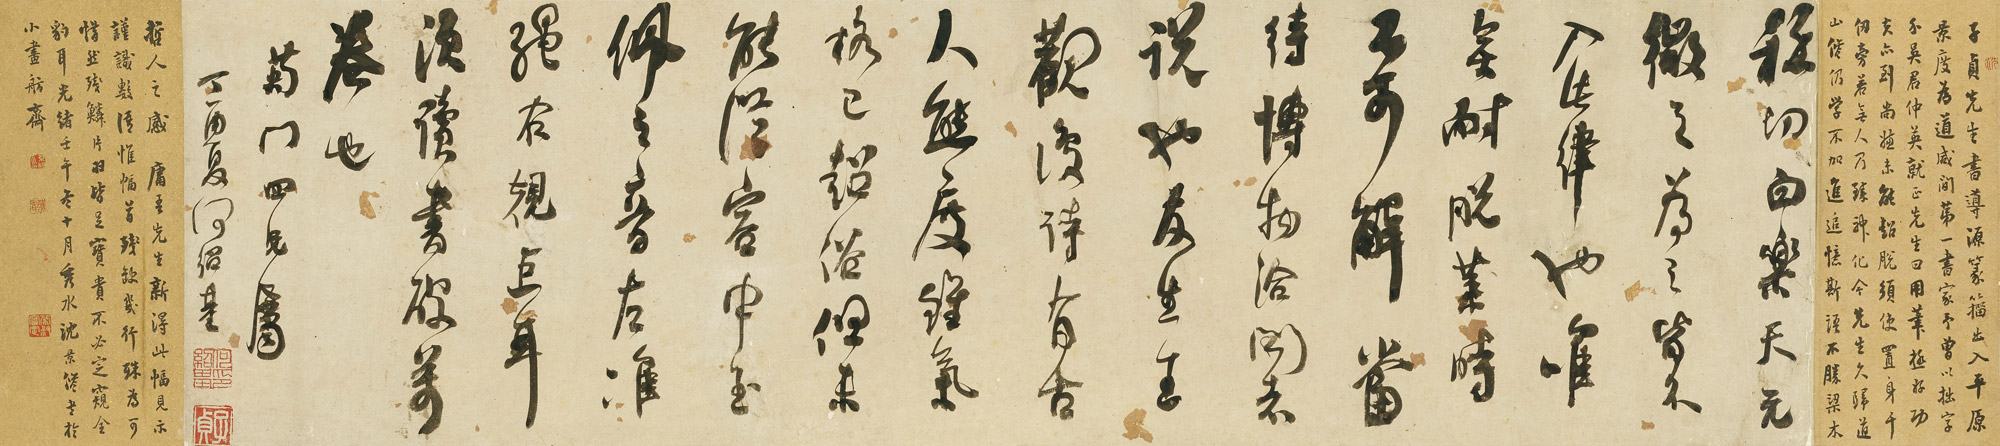 子貞先生書導源篆籀出入平原
景度為道咸間第一書家予曾以拙字
介吳君仲英就正先生曰用筆極好功
夫亦到尚嫌未能超脫須使置身千
仞旁若無人乃臻神化今先生久歸道
山儋仍學不加進追憶斯語不勝梁木
穩切白樂天元
微之為之皆不
入此律也唯
無耐脫葉時
不可解當
待博物洽聞者
說也友生王
觀復詩有古
人態度雖氣
格已超俗但未
能從容中玉
佩之音左準
繩右規矩耳
須讀書破萬
卷也
菊門四兄屬
丁酉夏何紹基
子貞
哲人之感 庸吾先生新得此幅見示
謹識數語惟幅首殘缺幾行殊為可
惜然殘鱗片羽皆足寶貴不必定窺全
豹耳光緒壬午冬十月秀水沈景儋書於
小畫舫齋